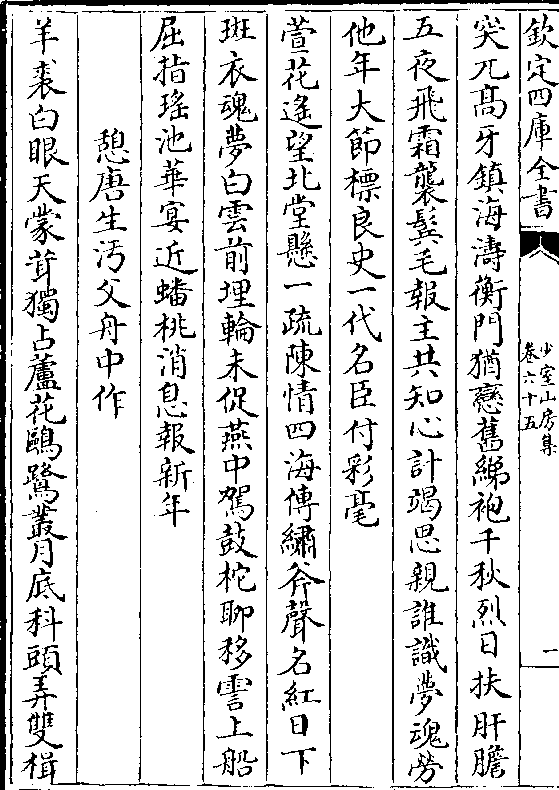 欽定四庫全書
少室山房集
卷六十五
一
突兀高牙鎮海濤衡門猶戀舊綈袍千秋烈日扶肝膽
五夜飛霜襲鬂毛報主共知心計竭思親誰識夢魂勞
他年大節標良史一代名臣付彩毫
萱花遙望北堂懸一疏陳情四海傳繡斧聲名紅日下
斑衣魂夢白雲前埋輪未促燕中駕鼓柁聊移霅上船
屈指瑤池華宴近蟠桃消息報新年
憩唐生汚父舟中作
羊裘白眼天蒙茸獨占蘆花鷗鷺叢月底科頭弄雙楫